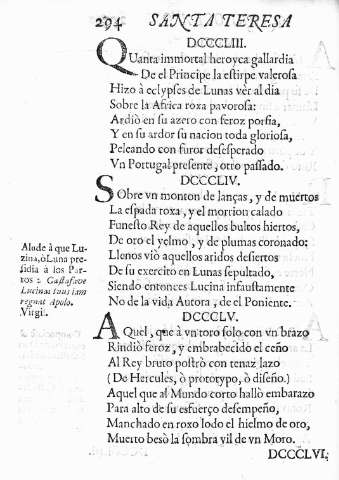 294 SANTA TERESA
DCCCLIII.
Quanta immortal heroyca gallardia
De el Principe la estirpe valerosa
Hizo à eclypses de Lunas vèr al dia
Sobre la Africa roxa pavorosa:
Ardiò en su azero con feroz porfia,
Y en su ardor su nacion toda gloriosa,
Peleando con furor desesperado
Vn Portugal presente, otro passado.
DCCCLIV.
SObre vn monton de lanças, y de muertos
La espada roxa, y el morrion calado
Funesto Rey de aquellos bultos hiertos,
De oro el yelmo, y de plumas coronado:
Llenos viò aquellos aridos desiertos
De su exercito en Lunas sepultado,
Siendo entonces Lucina infaustamente
No de la vida Autora, de el Poniente.
Alude à que Lu-
zina, ò Luna pre-
sidia à los Par-
tos : Casta fave
Lucina: tuus iam
regnat Apolo.
Virgil.
DCCCLV.
AQuel, que à vn toro solo con vn brazo
Rindiò feroz, y embrabecido el ceño
Al Rey bruto postrò con tenaz lazo
(De Hercules, ò prototypo, ò diseño.)
Aquel que al Mundo corto hallò embarazo
Para alto de su esfuerço desempeño,
Manchado en roxo lodo el hielmo de oro,
Muerto besò la sombra vil de vn Moro.
DCCCLVI.